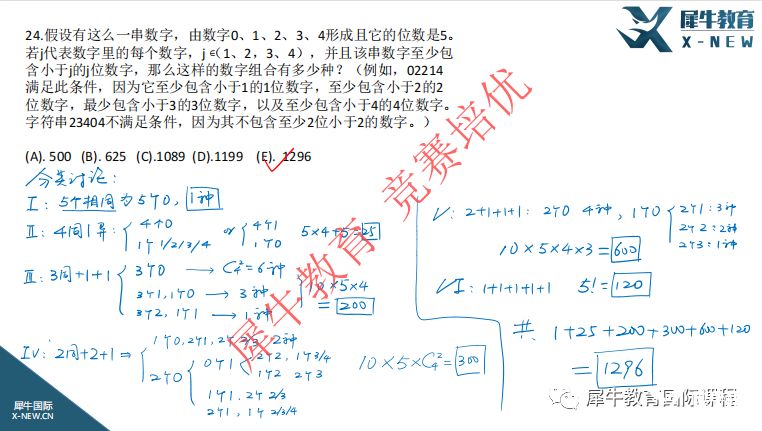 犀牛教育
X-NEW
24.假设有这么一串数字，由数字0、1、2、3、4形成且它的位数是5。
若j代表数字里的每个数字，j∈(1、2，3、4），并且该串数字至少包
含小于j的j位数字，那么这样的数字组合有多少种？（例如，02214
满足此条件，因为它至少包含小于1的1位数字，至少包含小于2的2
位数字，最少包含小于3的3位数字，以及至少包含小于4的4位数字。
字符串23404不满足条件，因为其不包含至少2位小于2的数字。）
(A). 500 (B). 625 (C).1089 (D).1199 (E). 1296
分类讨论：
I：5个相同为5个0，1种
II：4同1异：{4个0 1个1/2/3/4 or {4个1 1个0 5×4+5=25
III：3同+1+1 {3个0 → C₄²=6种
3个1,1个0 → 3种
3个2,1个1 → 1种
10×5×4
=200
IV：2同+2+1 ⇒ {1个0,2个1,2个2/3 2种
2个0 {0个1 {2个2,1个3/4
1个2 2个3
1个1.2个2/3
2个1,1个2/3/4
10×5×C₄²=300
V：2+1+1+1：2个0 4种，1个0 {2个1：3种
2个2：2种
2个3：1种
10×5×4×3=600
VI：1+1+1+1+1 5!=120
共：1+25+200+300+600+120
=1296
犀牛教育 竞赛培优
犀牛国际
X-NEW.CN
犀牛教育国际课程